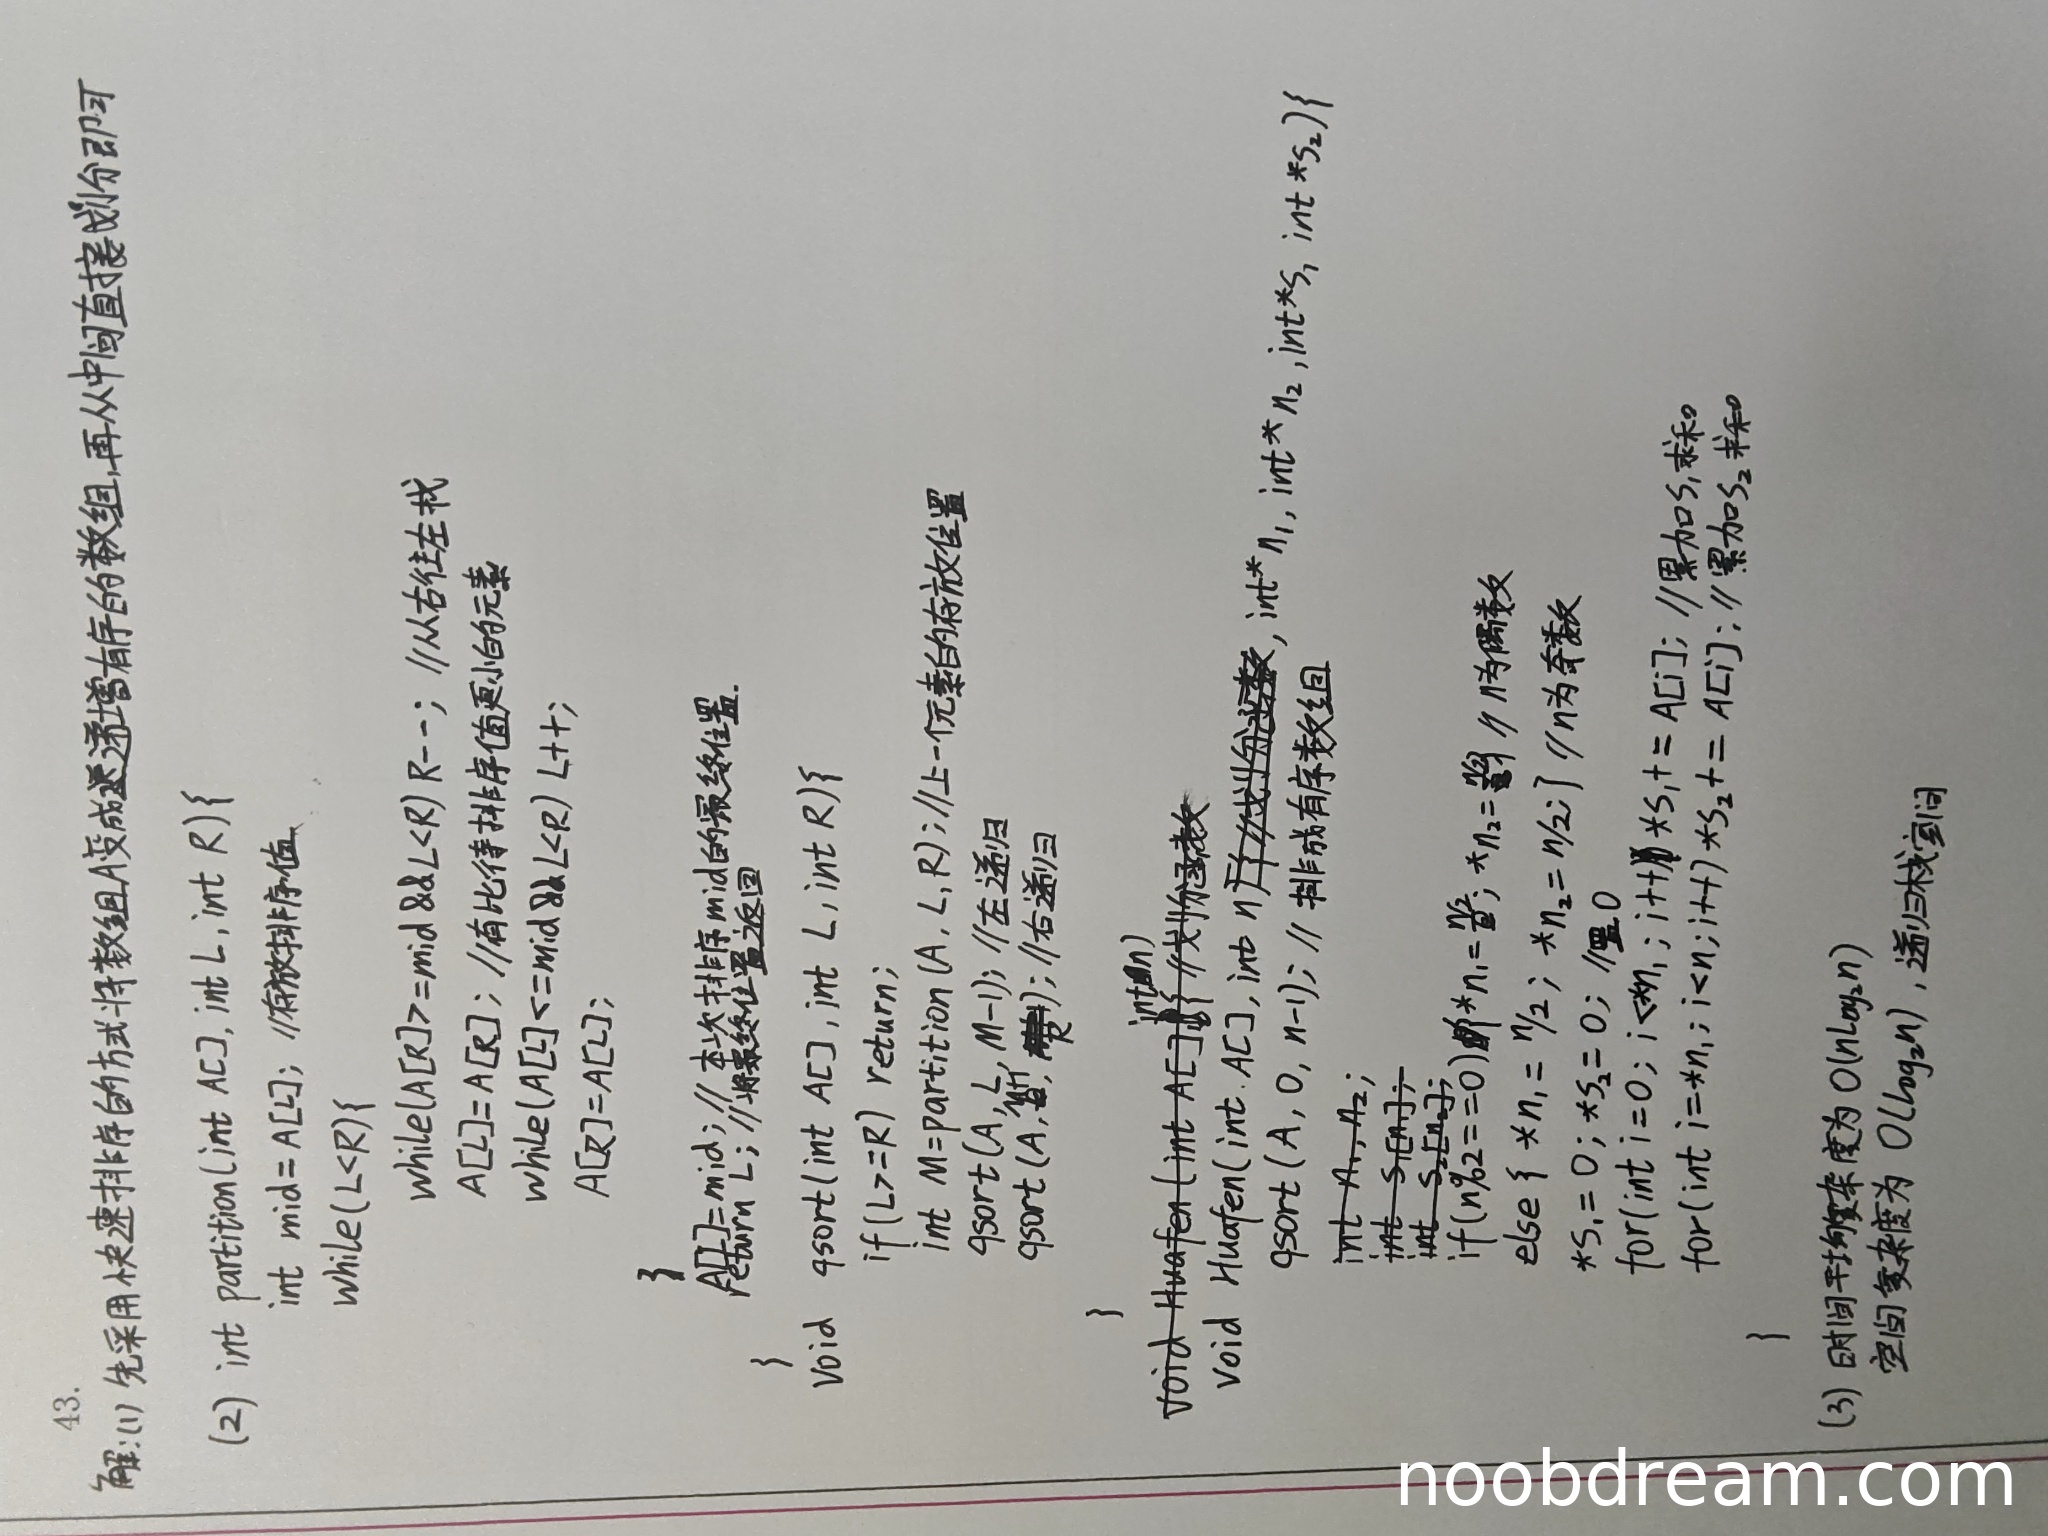 43.
解:(1) 先采用快速排序的方式将数组A变成递增有序的数组,再从中间直接划分即可
(2) int partition(int A[], int L, int R){
int mid=A[L]; //存放排序值
while(L<R){
while(A[R]>=mid&&L<R) R--; //从右往左找
A[L]=A[R]; //有比待排序值更小的元素
while(A[L]<=mid&&L<R) L++;
A[R]=A[L];
}
A[L]=mid; //本次排序mid的最终位置.
return L; //将最终位置返回
}
void qsort(int A[], int L, int R){
if(L>=R) return;
int M=partition(A, L, R); //上一个元素的存放位置
qsort(A, L, M-1); //左递归
qsort(A, M+1, R); //右递归
}
void Huafen(int A[], int n) { //划分函数
void Huafen(int A[], int n //划分函数, int* n₁, int* n₂, int*s₁, int*s₂){
qsort(A, 0, n-1); // 排成有序数组
int A₁, A₂;
int S₁[n];
int S₂[n];
if(n%2==0){*n₁=n/2; *n₂=n/2} //n为偶数
else{ *n₁=n/2; *n₂=n/2;} //n为奇数
*s₁=0; *s₂=0; //置0
for(int i=0; i<*n₁; i++) *s₁+=A[i]; //累加s₁求和
for(int i=*n₁; i<n; i++) *s₂+=A[i]; //累加s₂求和
}
(3) 时间平均复杂度为O(nlog₂n)
空间复杂度为 O(log₂n), 递归栈空间
noobdream.com